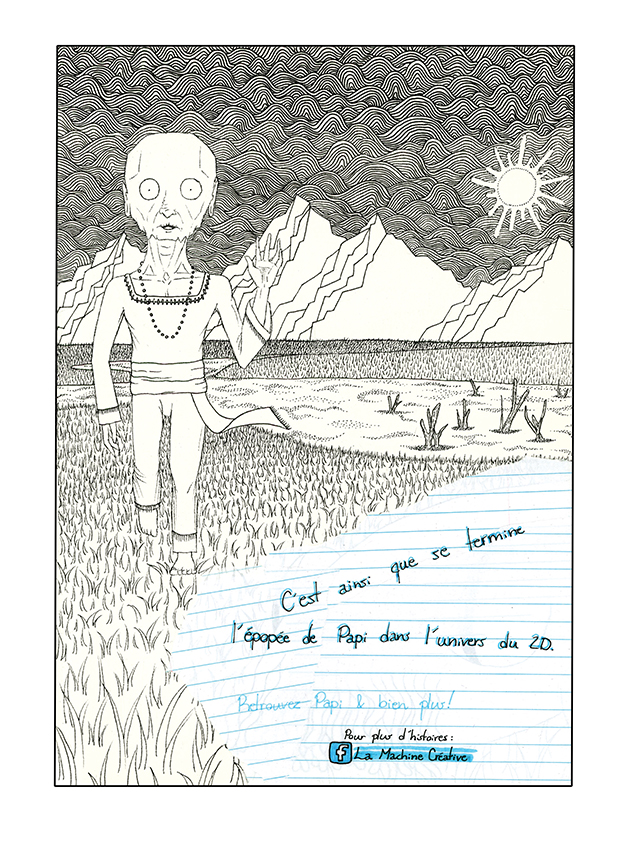 C'est ainsi que se termine
l'épopée de Papi dans l'univers du 2D.
Retrouvez Papi & bien plus!
Pour plus d'histoires:
f La Machine Créative